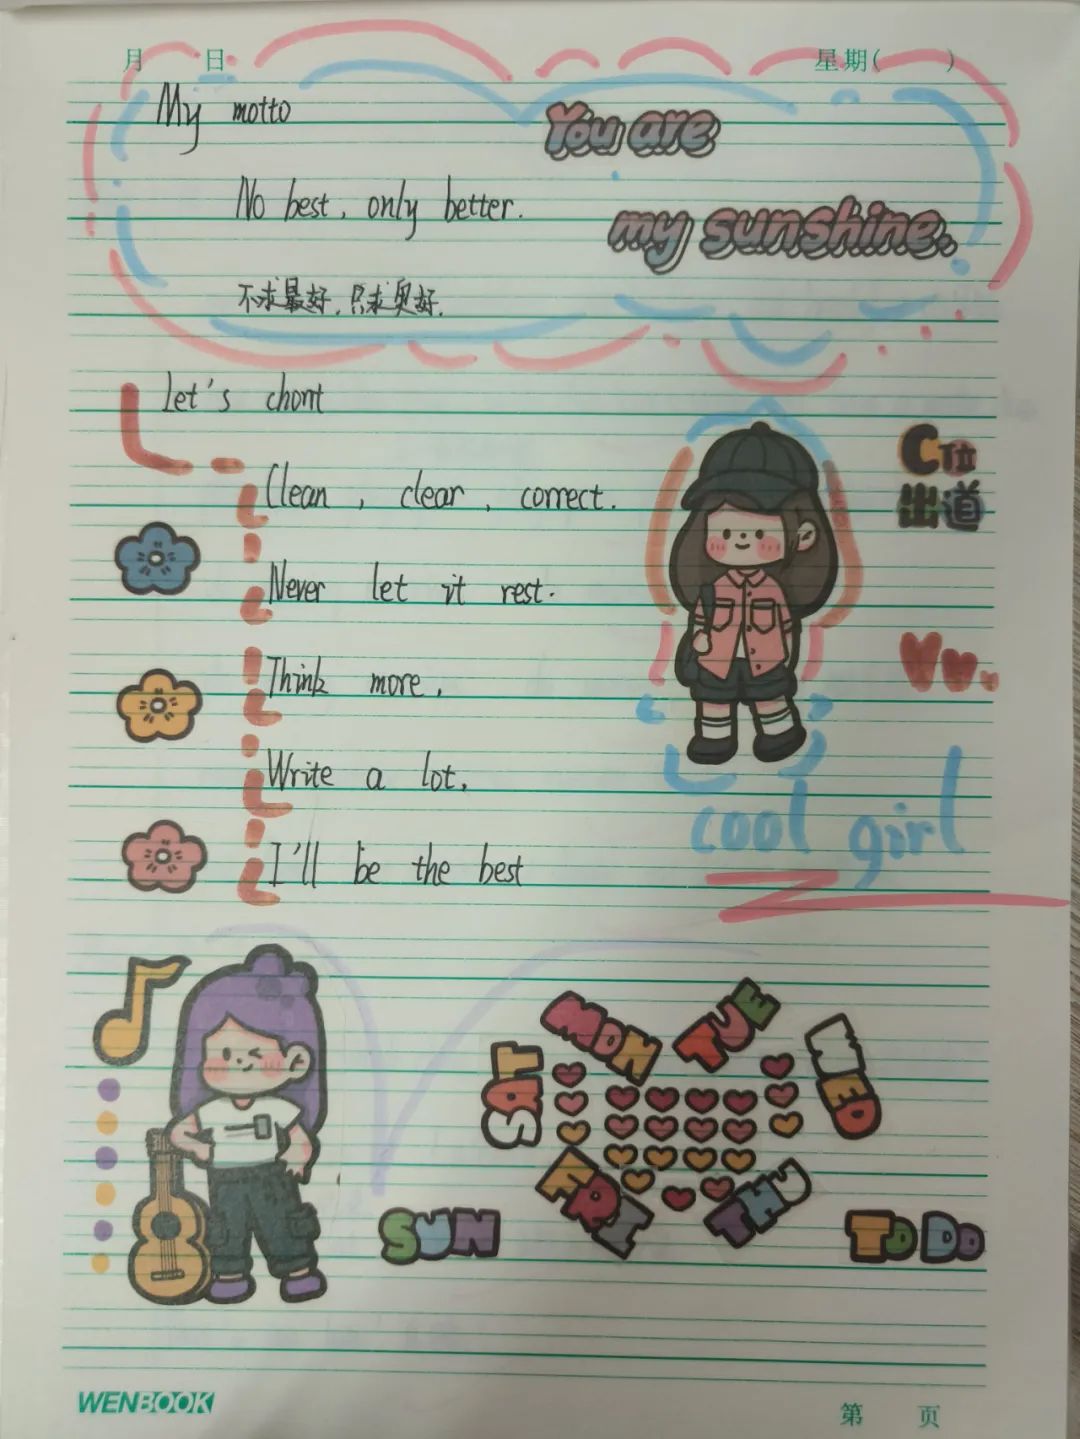 月 日 星期( )
My motto
You are
No best, only better.
my sunshine.
不求最好,只求更好.
Let's chant
C位
出道
Clean, clear, correct.
Never let it rest.
Think more,
Write a lot,
cool girl
I'll be the best
MON TUE
SAT WED
FRI THU
SUN TO DO
WENBOOK
第 页